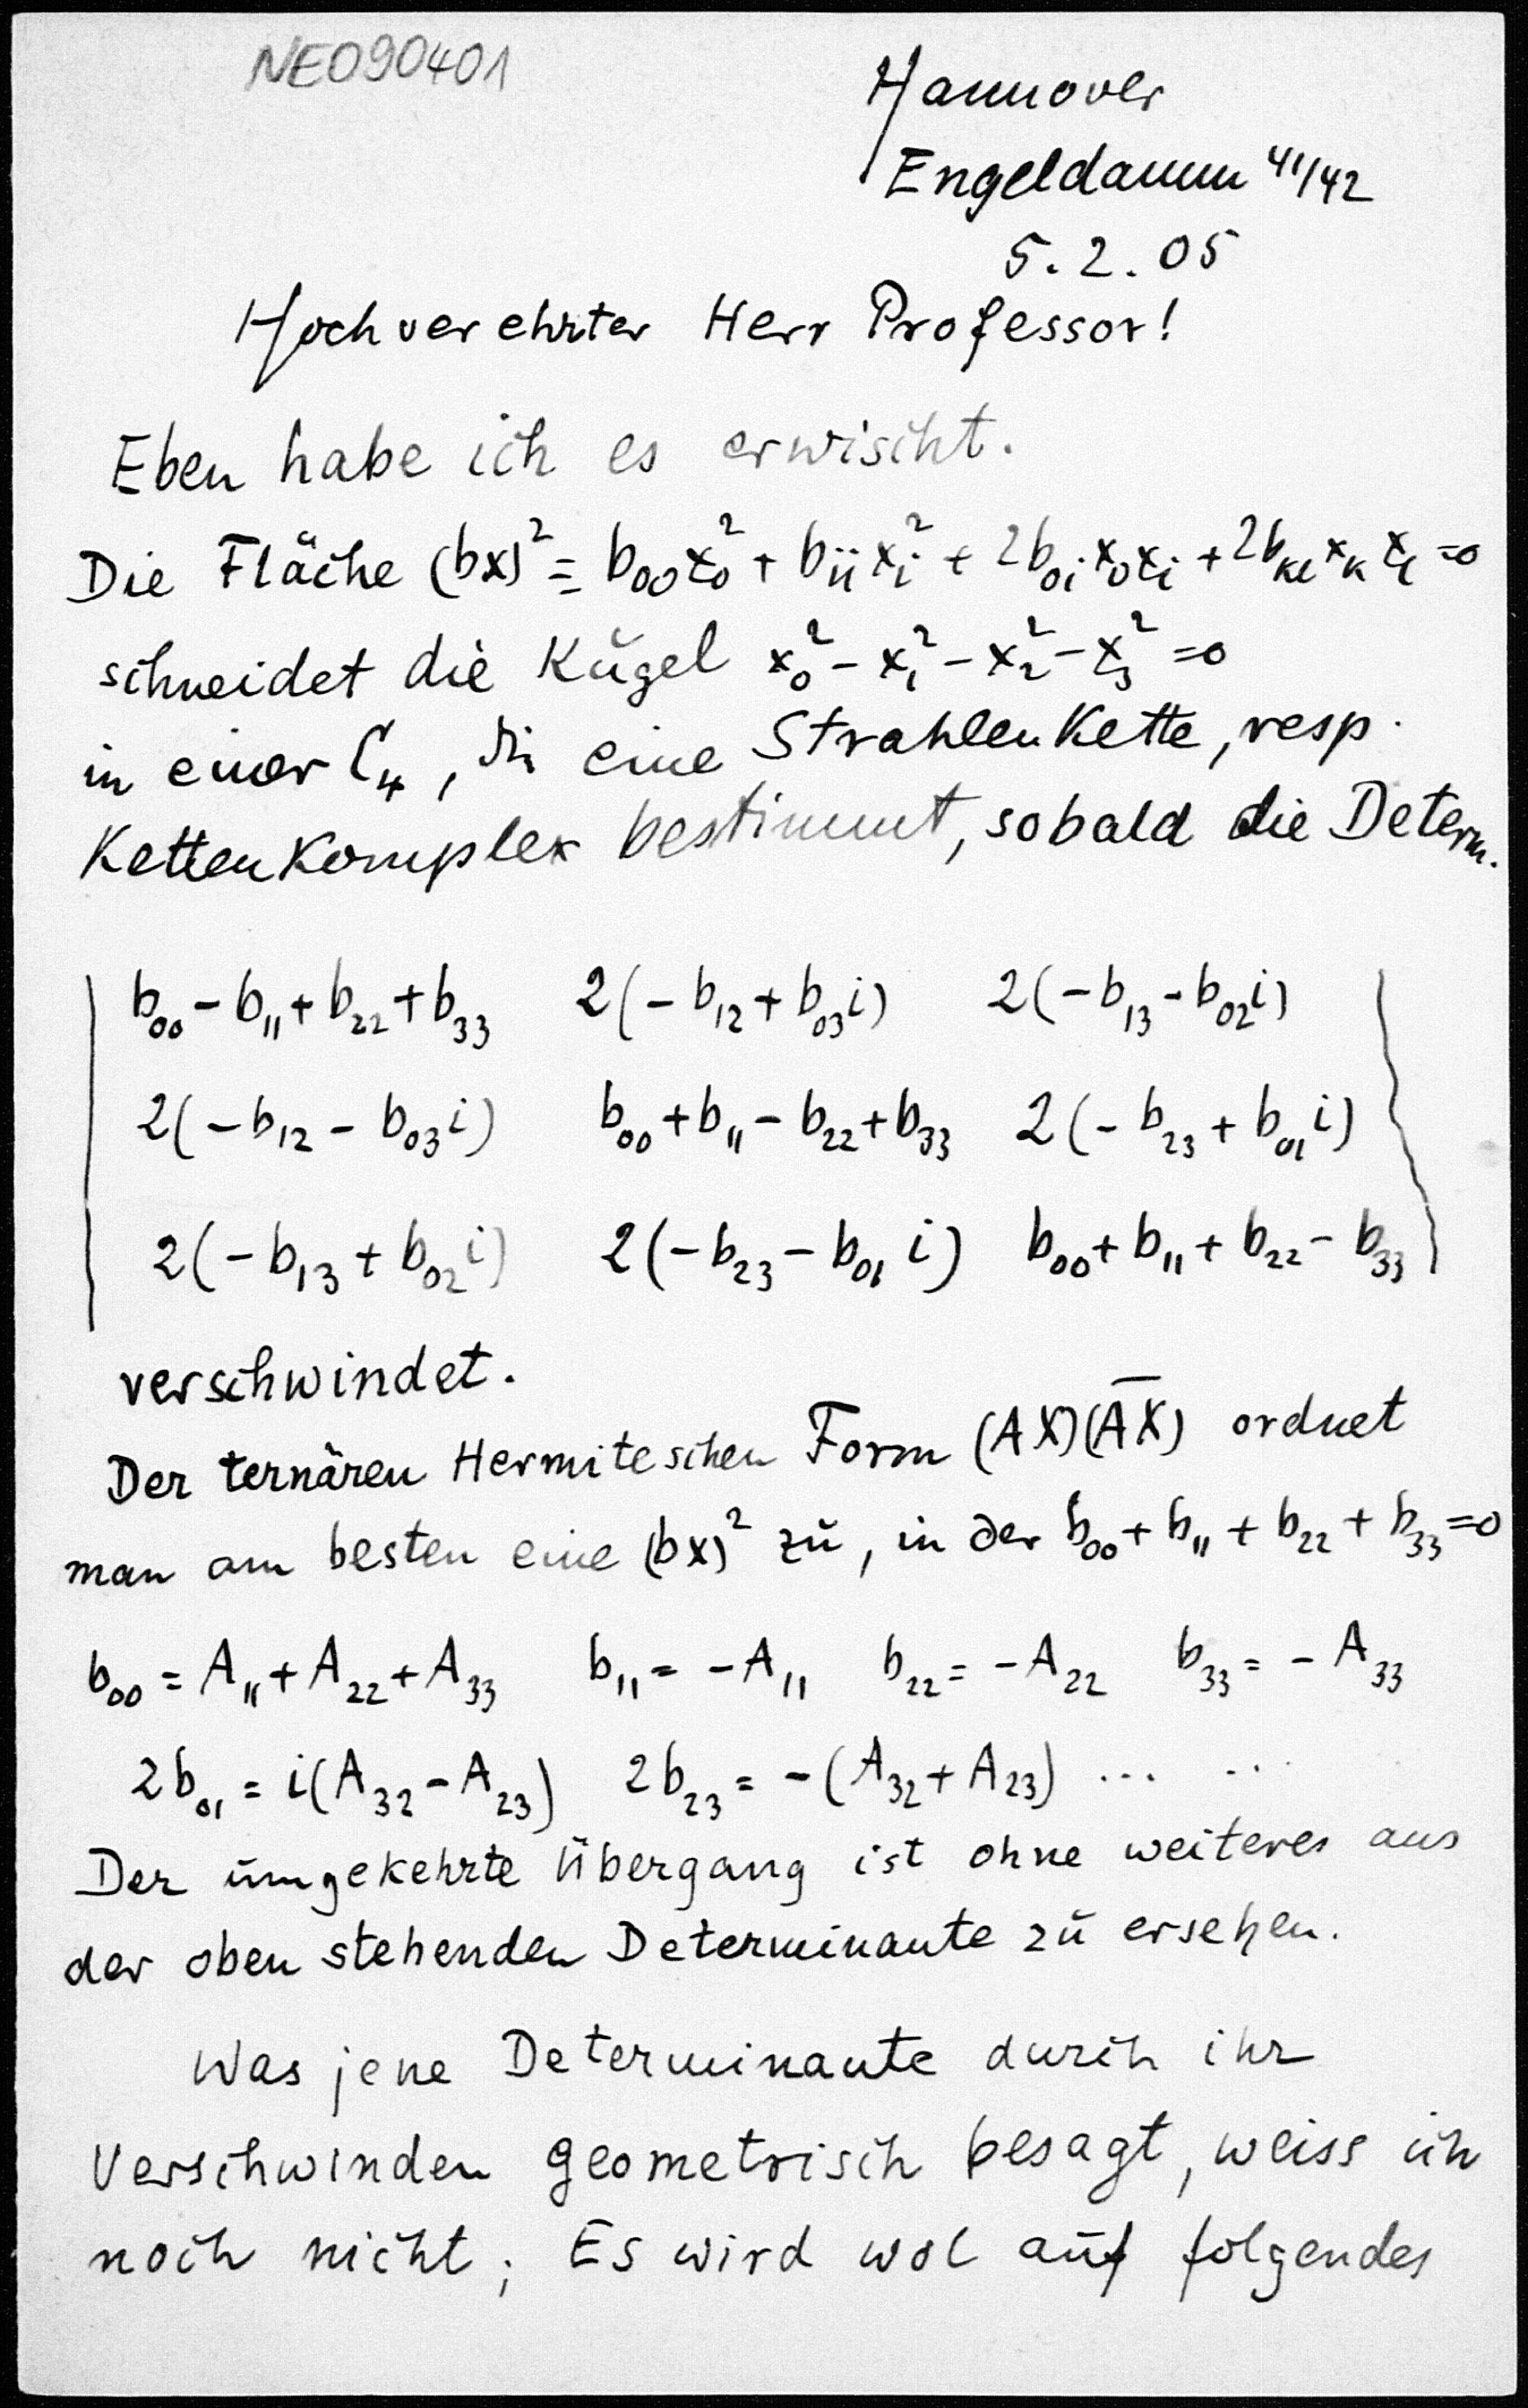 NE090401
Hannover
Engeldamm 41/42
5. 2. 05
Hochverehrter Herr Professor!
Eben habe ich es erwischt.
Die Fläche (bx)² = b₀₀x₀² + bᵢᵢxᵢ² + 2b₀ᵢx₀xᵢ + 2bₖₗxₖxₗ =0
schneidet die Kugel x₀² - x₁² - x₂² - x₃² =0
in einer C₄, die eine Strahlenkette, resp.
Kettenkomplex bestimmt, sobald die Determ.
b₀₀ - b₁₁ + b₂₂ + b₃₃ 2(- b₁₂ + b₀₃i) 2(- b₁₃ - b₀₂i)
2(- b₁₂ - b₀₃i) b₀₀ + b₁₁ - b₂₂ + b₃₃ 2(- b₂₃ + b₀₁i)
2(- b₁₃ + b₀₂i) 2(- b₂₃ - b₀₁i) b₀₀ + b₁₁ + b₂₂ - b₃₃
verschwindet.
Der ternären Hermiteschen Form (AX)(A̅X̅) ordnet
man am besten eine (bx)² zu, in der b₀₀ + b₁₁ + b₂₂ + b₃₃ =0
b₀₀ = A₁₁ + A₂₂ + A₃₃ b₁₁ = - A₁₁ b₂₂ = - A₂₂ b₃₃ = - A₃₃
2b₀₁ = i(A₃₂ - A₂₃) 2b₂₃ = - (A₃₂ + A₂₃) ... ..
Der umgekehrte Übergang ist ohne weiteres aus
der oben stehenden Determinante zu ersehen.
Was jene Determinante durch ihr
Verschwinden geometrisch besagt, weiss ich
noch nicht; Es wird wol auf folgendes